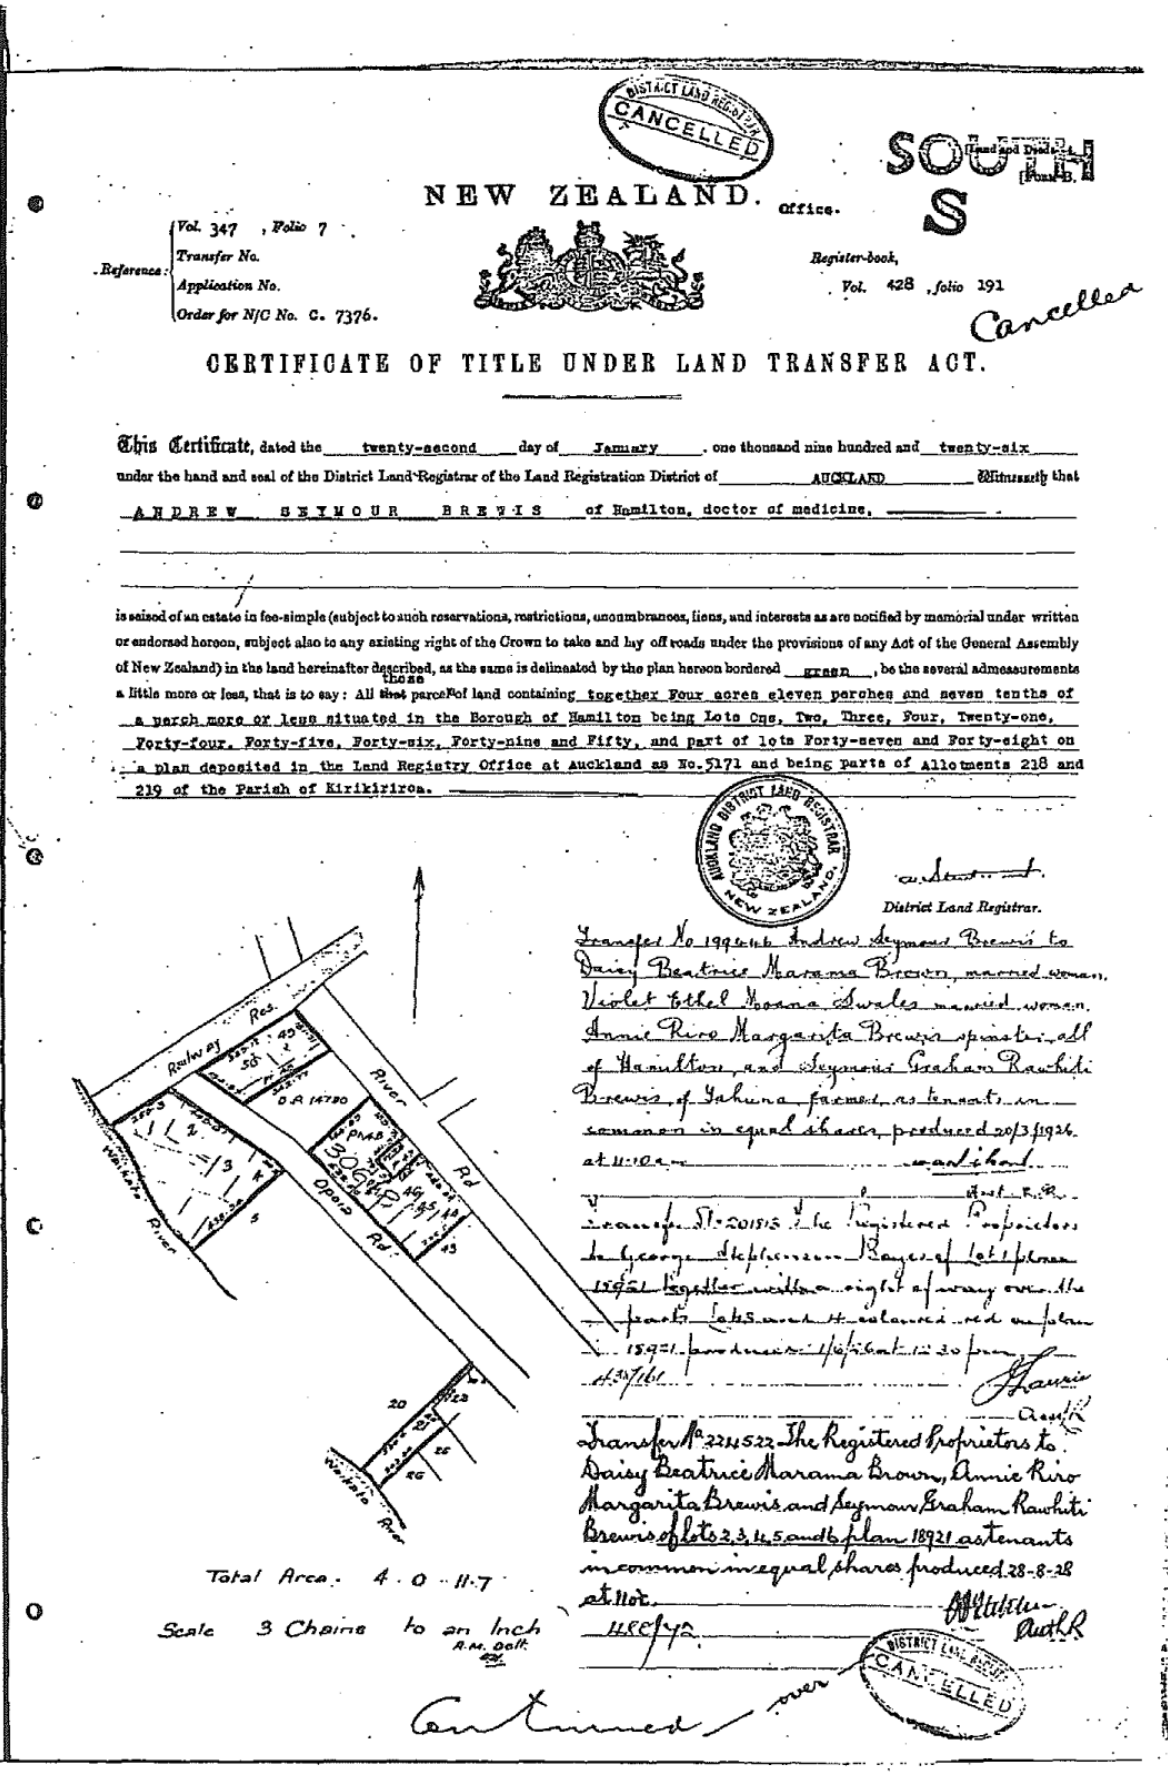 DISTRICT LAND REGISTRAR
CANCELLED
SOUTH
S
NEW ZEALAND.
Office.
Reference:
Vol. 347 , Folio 7
Transfer No.
Application No.
Order for N/C No. C. 7376.
Register-book,
Vol. 428 , folio 191
Cancelled
CERTIFICATE OF TITLE UNDER LAND TRANSFER ACT.
This Certificate, dated the twenty-second day of January , one thousand nine hundred and twenty-six
under the hand and seal of the District Land Registrar of the Land Registration District of AUCKLAND Witnesseth that
ANDREW SEYMOUR BREWIS of Hamilton, doctor of medicine,
is seised of an estate in fee-simple (subject to such reservations, restrictions, encumbrances, liens, and interests as are notified by memorial under written
or endorsed hereon, subject also to any existing right of the Crown to take and lay off roads under the provisions of any Act of the General Assembly
of New Zealand) in the land hereinafter described, as the same is delineated by the plan hereon bordered green , be the several admeasurements
those
a little more or less, that is to say: All that parcels of land containing together Four acres eleven perches and seven tenths of
a perch more or less situated in the Borough of Hamilton being Lots One, Two, Three, Four, Twenty-one,
Forty-four, Forty-five, Forty-six, Forty-nine and Fifty, and part of lots Forty-seven and Forty-eight on
a plan deposited in the Land Registry Office at Auckland as No.5171 and being parts of Allotments 218 and
219 of the Parish of Kirikiriroa.
AUCKLAND DISTRICT LAND REGISTRAR
NEW ZEALAND.
District Land Registrar.
Transfer No 199446 Andrew Seymour Brewis to
Daisy Beatrice Marama Brown, married woman,
Violet Ethel Moana Swales married woman,
Annie Riro Margarita Brewis spinster all
of Hamilton and Seymour Graham Rawhiti
Brewis of Tahuna farmer as tenants in
common in equal shares produced 20/3/1926
at 11.10 am
Asst. L.R.
Transfer 201513 The Registered Proprietors
to George Stephenson of Lot 1 plan
18921 together with a right of way over the
parts Lots and 4 coloured red on plan
18921 produced
438/161
Transfer No 224522 The Registered Proprietors to
Daisy Beatrice Marama Brown, Annie Riro
Margarita Brewis and Seymour Graham Rawhiti
Brewis of lots 2,3,4,5 and 6 plan 18921 as tenants
in common in equal shares produced 28-8-28
at 11 o'c.
Railway Res.
River Rd
Opoia Rd.
D.P. 14780
50
49
1
2
3
4
5
46
45
44
43
Waikato River
20
22
21
25
26
Waikato River
Total Area. 4 . 0 . 11.7
Scale 3 Chains to an Inch
Continued over
DISTRICT LAND REGISTRAR
CANCELLED